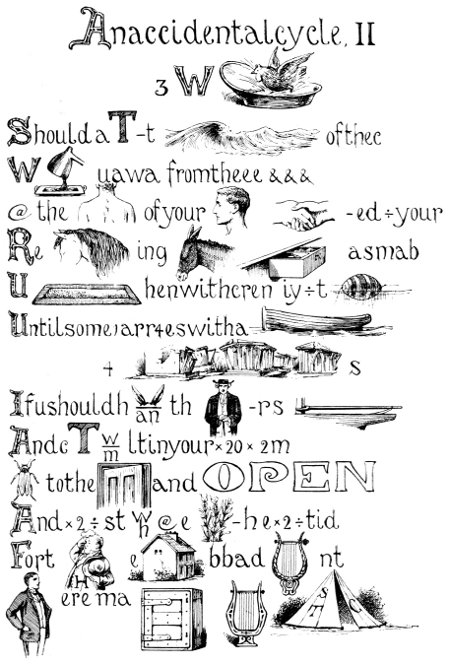 Anaccidentalcycle, II
3 W
Should a T-t ofthec
W uawa fromtheee &&&
@ the of your -ed ÷ your
Re ing asmab
U henwithcren iy÷t
Untilsome1arr4eswitha
4 s
Ifushouldh an th -rs
Andc T w m ltinyour×20×2m
tothe and OPEN
And×2÷st w h @ e -he×2÷tid
Fort e bbad nt
H erema E S T C